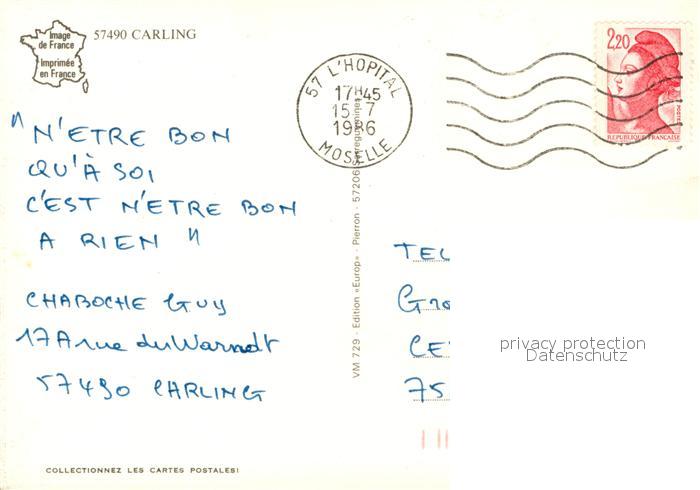 Image
de France
Imprimée
en France
57490 CARLING
57 L'HOPITAL
17H45
15-7
1986
MOSELLE
2,20
POSTES
REPUBLIQUE FRANÇAISE
" N'ETRE BON
QU'À SOI
C'EST N'ETRE BON
A RIEN "
CHABOCHE GUY
17A rue du Warndt
57490 CARLING
VM 729 - Edition «Europ» - Pierron - 57206 Sarreguemines
TEL
Gro
CE
75
privacy protection
Datenschutz
COLLECTIONNEZ LES CARTES POSTALES!